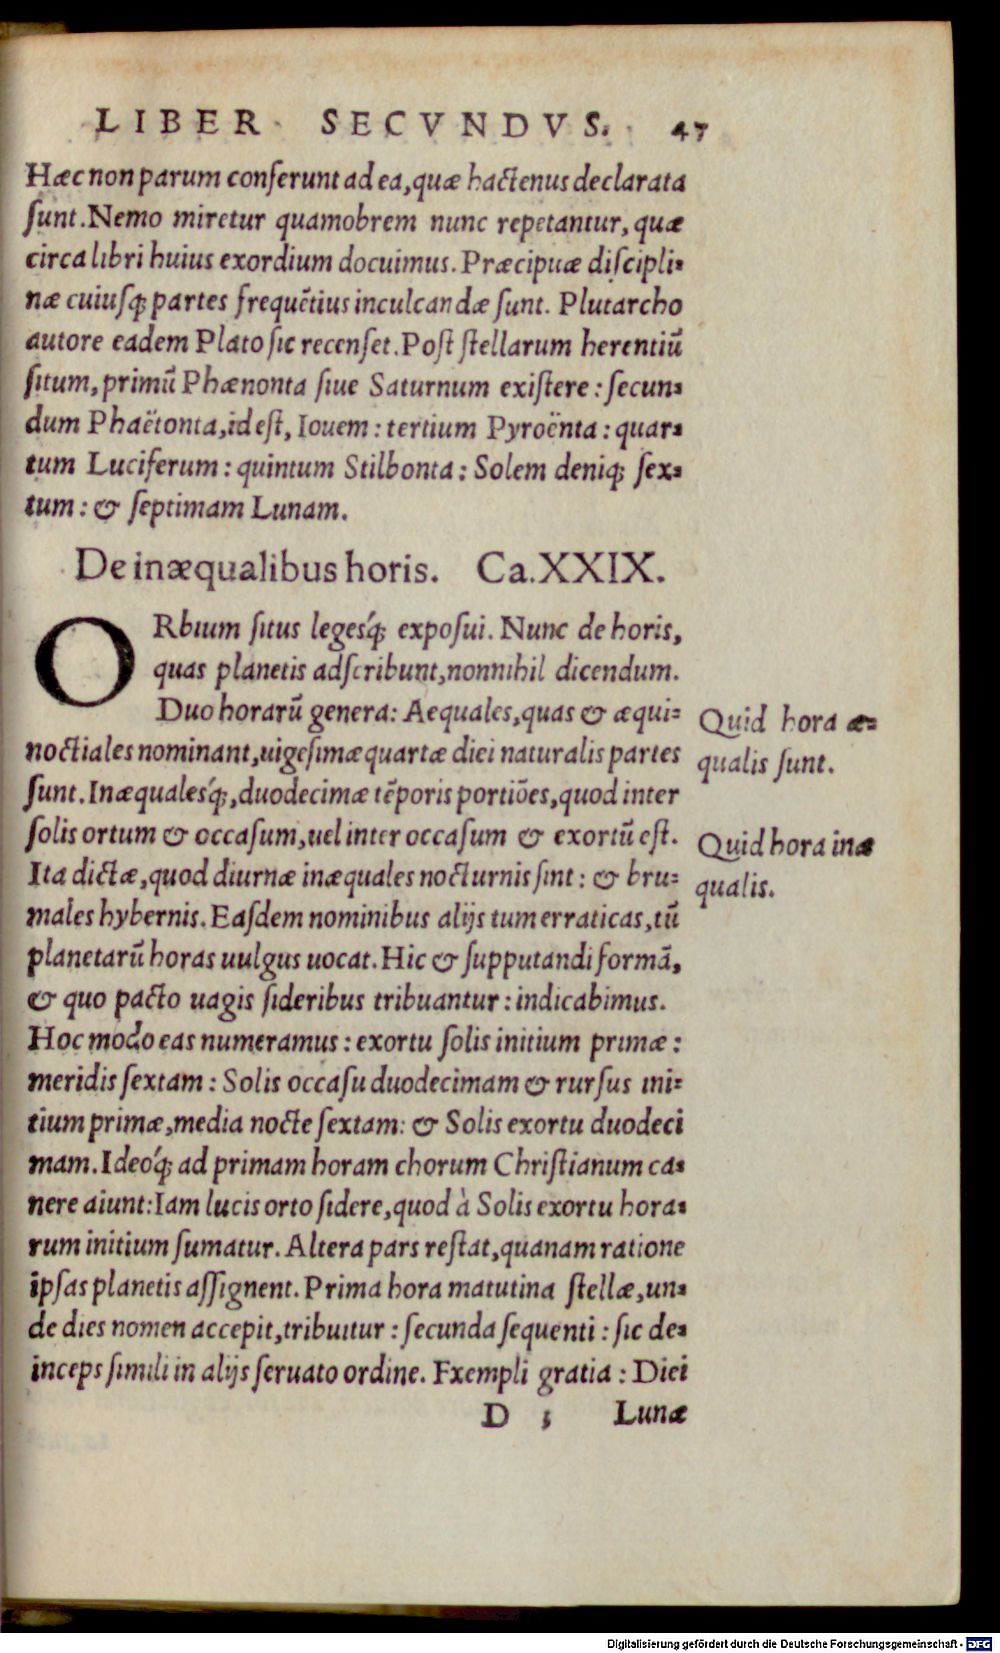 LIBER SECVNDVS. 47
Hæc non parum conferunt ad ea, quæ hactenus declarata
ſunt. Nemo miretur quamobrem nunc repetantur, quæ
circa libri huius exordium docuimus. Præcipuæ diſcipli-
næ cuiuſq; partes frequẽtius inculcandæ ſunt. Plutarcho
autore eadem Plato ſic recenſet. Poſt ſtellarum herentiũ
ſitum, primũ Phænonta ſiue Saturnum exiſtere: ſecun-
dum Phaëtonta, id eſt, Iouem: tertium Pyroënta: quar-
tum Luciferum: quintum Stilbonta: Solem deniq; ſex-
tum: & ſeptimam Lunam.
De inæqualibus horis. Ca. XXIX.
ORbium ſitus legesq́; expoſui. Nunc de horis,
quas planetis adſcribunt, nonnihil dicendum.
Duo horarũ genera: Aequales, quas & æqui-
Quid hora æ-
noctiales nominant, uigeſimæquartæ diei naturalis partes
qualis ſunt.
ſunt. Inæqualesq́;, duodecimæ tẽporis portiões, quod inter
ſolis ortum & occaſum, uel inter occaſum & exortũ eſt.
Quid hora inæ
Ita dictæ, quod diurnæ inæquales nocturnis ſint: & bru-
qualis.
males hybernis. Eaſdem nominibus alijs tum erraticas, tũ
planetarũ horas uulgus uocat. Hic & ſupputandi formã,
& quo pacto uagis ſideribus tribuantur: indicabimus.
Hoc modo eas numeramus: exortu ſolis initium primæ:
meridis ſextam: Solis occaſu duodecimam & rurſus ini-
tium primæ, media nocte ſextam: & Solis exortu duodeci
mam. Ideoq́; ad primam horam chorum Chriſtianum ca-
nere aiunt: Iam lucis orto ſidere, quod à Solis exortu hora-
rum initium ſumatur. Altera pars reſtat, quanam ratione
ipſas planetis aſſignent. Prima hora matutina ſtellæ, un-
de dies nomen accepit, tribuitur: ſecunda ſequenti: ſic de-
inceps ſimili in alijs ſeruato ordine. Exempli gratia: Diei
D 3 Lunæ
Digitalisierung gefördert durch die Deutsche Forschungsgemeinschaft - DFG